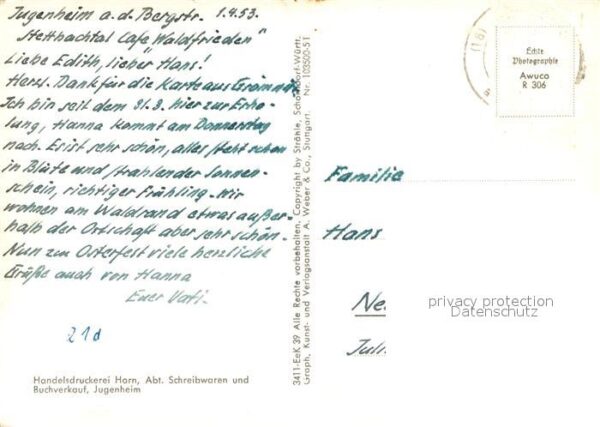 Jugenheim a. d. Bergstr. 1.4.53.
Stettbachtal Café "Waldfrieden"
Liebe Edith, lieber Hans!
Herzl. Dank für die Karte aus
Ich bin seit dem 31.3. hier zur Erho-
lung, Hanna kommt am Donnerstag
nach. Es ist sehr schön, alles steht schon
in Blüte und strahlender Sonnen-
schein, richtiger Frühling. Wir
wohnen am Waldrand etwas außer-
halb der Ortschaft aber sehr schön.
Nun zum Osterfest viele herzliche
Grüße auch von Hanna
Euer Vati.
21d
Handelsdruckerei Horn, Abt. Schreibwaren und
Buchverkauf, Jugenheim
3411-EeK 39 Alle Rechte vorbehalten. Copyright by Strähle, Schorndorf-Württ.
Graph. Kunst- und Verlagsanstalt A. Weber & Co., Stuttgart. Nr. 103500-51
Echte
Photographie
Awuco
R 306
Familie
Hans
Ne
privacy protection
Datenschutz